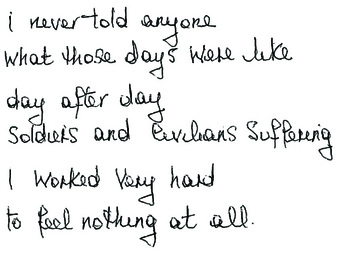 i never told anyone
what those days were like
day after day
Soldiers and Civilians Suffering
I worked very hard
to feel nothing at all.